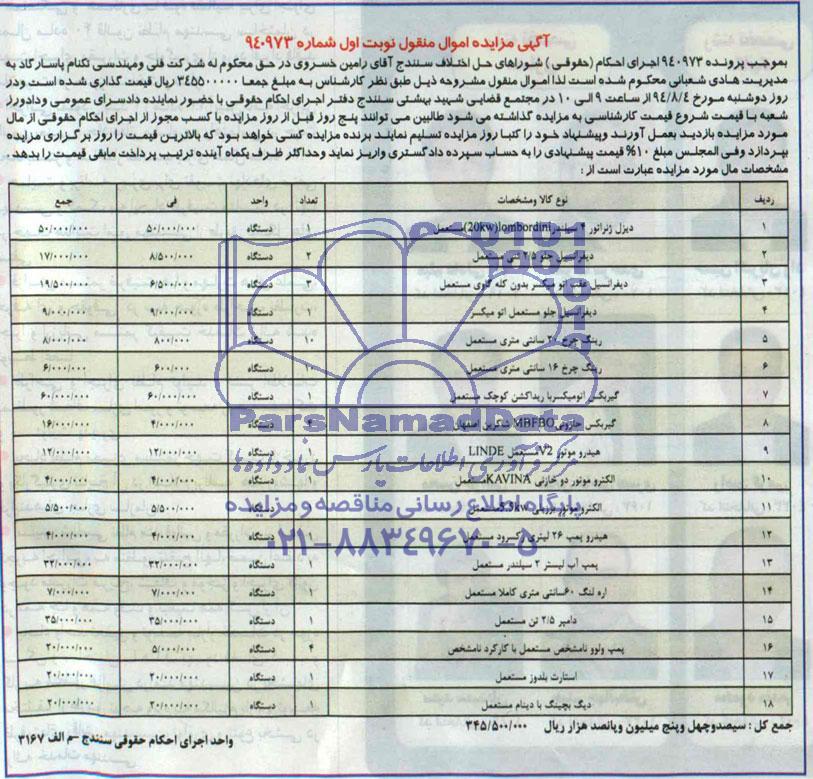 آگهی مزایده اموال منقول نوبت اول شماره ۹۴۰۹۷۳
بموجب پرونده ۹۴۰۹۷۳ اجرای احکام (حقوقی) شوراهای حل اختلاف سنندج آقای رامین خسروی در حق محکوم له شرکت فنی ومهندسی تکنام پاسارگاد به
مدیریت هادی شعبانی محکوم شده است لذا اموال منقول مشروحه ذیل طبق نظر کارشناس به مبلغ جمعا ۳۴۵۵۰۰۰۰۰ ریال قیمت گذاری شده است ودر
روز دوشنبه مورخ ۹۴/۸/۴ از ساعت ۹ الی ۱۰ در مجتمع قضایی شهید بهشتی سنندج دفتر اجرای احکام حقوقی با حضور نماینده دادسرای عمومی ودادورز
شعبه با قیمت شروع قیمت کارشناسی به مزایده گذاشته می شود طالبین می توانند پنج روز قبل از روز مزایده با کسب مجوز از اجرای احکام حقوقی از مال
مورد مزایده بازدید بعمل آورند وپیشنهاد خود را کتبا روز مزایده تسلیم نمایند برنده مزایده کسی خواهد بود که بالاترین قیمت را روز برگزاری مزایده
بپردازد وفی المجلس مبلغ ۱۰% قیمت پیشنهادی را به حساب سپرده دادگستری واریز نماید وحداکثر ظرف یکماه آینده ترتیب پرداخت مابقی قیمت را بدهد.
مشخصات مال مورد مزایده عبارت است از :
ردیف نوع کالا ومشخصات تعداد واحد فی جمع
۱ دیزل ژنراتور ۴ سیلندر lombordini(20kw)مستعمل ۱ دستگاه ۵۰/۰۰۰/۰۰۰ ۵۰/۰۰۰/۰۰۰
۲ دیفرانسیل جلو ۲/۵ تنی مستعمل ۲ دستگاه ۸/۵۰۰/۰۰۰ ۱۷/۰۰۰/۰۰۰
۳ دیفرانسیل عقب اتو میکسر بدون کله گاوی مستعمل ۳ دستگاه ۶/۵۰۰/۰۰۰ ۱۹/۵۰۰/۰۰۰
۴ دیفرانسیل جلو مستعمل اتو میکسر ۱ دستگاه ۹/۰۰۰/۰۰۰ ۹/۰۰۰/۰۰۰
۵ رینگ چرخ ۲۰ سانتی متری مستعمل ۱۰ دستگاه ۸۰۰/۰۰۰ ۸/۰۰۰/۰۰۰
۶ رینگ چرخ ۱۶ سانتی متری مستعمل ۱۰ دستگاه ۶۰۰/۰۰۰ ۶/۰۰۰/۰۰۰
۷ گیربکس اتومیکسربا ریداکشن کوچک مستعمل ۱ دستگاه ۶۰/۰۰۰/۰۰۰ ۶۰/۰۰۰/۰۰۰
۸ گیربکس حلزونی MBFBO شاکرین اصفهان ۴ دستگاه ۴/۰۰۰/۰۰۰ ۱۶/۰۰۰/۰۰۰
۹ هیدرو موتور V2مستعمل LINDE ۱ دستگاه ۱۲/۰۰۰/۰۰۰ ۱۲/۰۰۰/۰۰۰
۱۰ الکترو موتور دو خازنی KAVINAمستعمل ۱ دستگاه ۴/۰۰۰/۰۰۰ ۴/۰۰۰/۰۰۰
۱۱ الکترو موتور 5.5kwمستعمل ۱ دستگاه ۵/۵۰۰/۰۰۰ ۵/۵۰۰/۰۰۰
۱۲ هیدرو پمپ ۲۶ لیتری رکسرود مستعمل ۱ دستگاه ۴/۰۰۰/۰۰۰ ۴/۰۰۰/۰۰۰
۱۳ پمپ آب لیستر ۲ سیلندر مستعمل ۱ دستگاه ۳۲/۰۰۰/۰۰۰ ۳۲/۰۰۰/۰۰۰
۱۴ اره لنگ ۶۰سانتی متری کاملا مستعمل ۱ دستگاه ۷/۰۰۰/۰۰۰ ۷/۰۰۰/۰۰۰
۱۵ دامپر ۲/۵ تن مستعمل ۱ دستگاه ۳۵/۰۰۰/۰۰۰ ۳۵/۰۰۰/۰۰۰
۱۶ پمپ ولوو نامشخص مستعمل با کارکرد نامشخص ۴ دستگاه ۵/۰۰۰/۰۰۰ ۲۰/۰۰۰/۰۰۰
۱۷ استارت بلدوز مستعمل ۱ دستگاه ۲۰/۰۰۰/۰۰۰ ۲۰/۰۰۰/۰۰۰
۱۸ دیگ بچینگ با دینام مستعمل ۱ دستگاه ۲۰/۰۰۰/۰۰۰ ۲۰/۰۰۰/۰۰۰
جمع کل : سیصدوچهل وپنج میلیون وپانصد هزار ریال ۳۴۵/۵۰۰/۰۰۰
واحد اجرای احکام حقوقی سنندج – م الف ۳۱۶۷
ParsNamadData
مرکز فرآوری اطلاعات پارس نماد داده ها
پایگاه اطلاع رسانی مناقصه و مزایده
۰۲۱-۸۸۳۴۹۶۷۰-۵